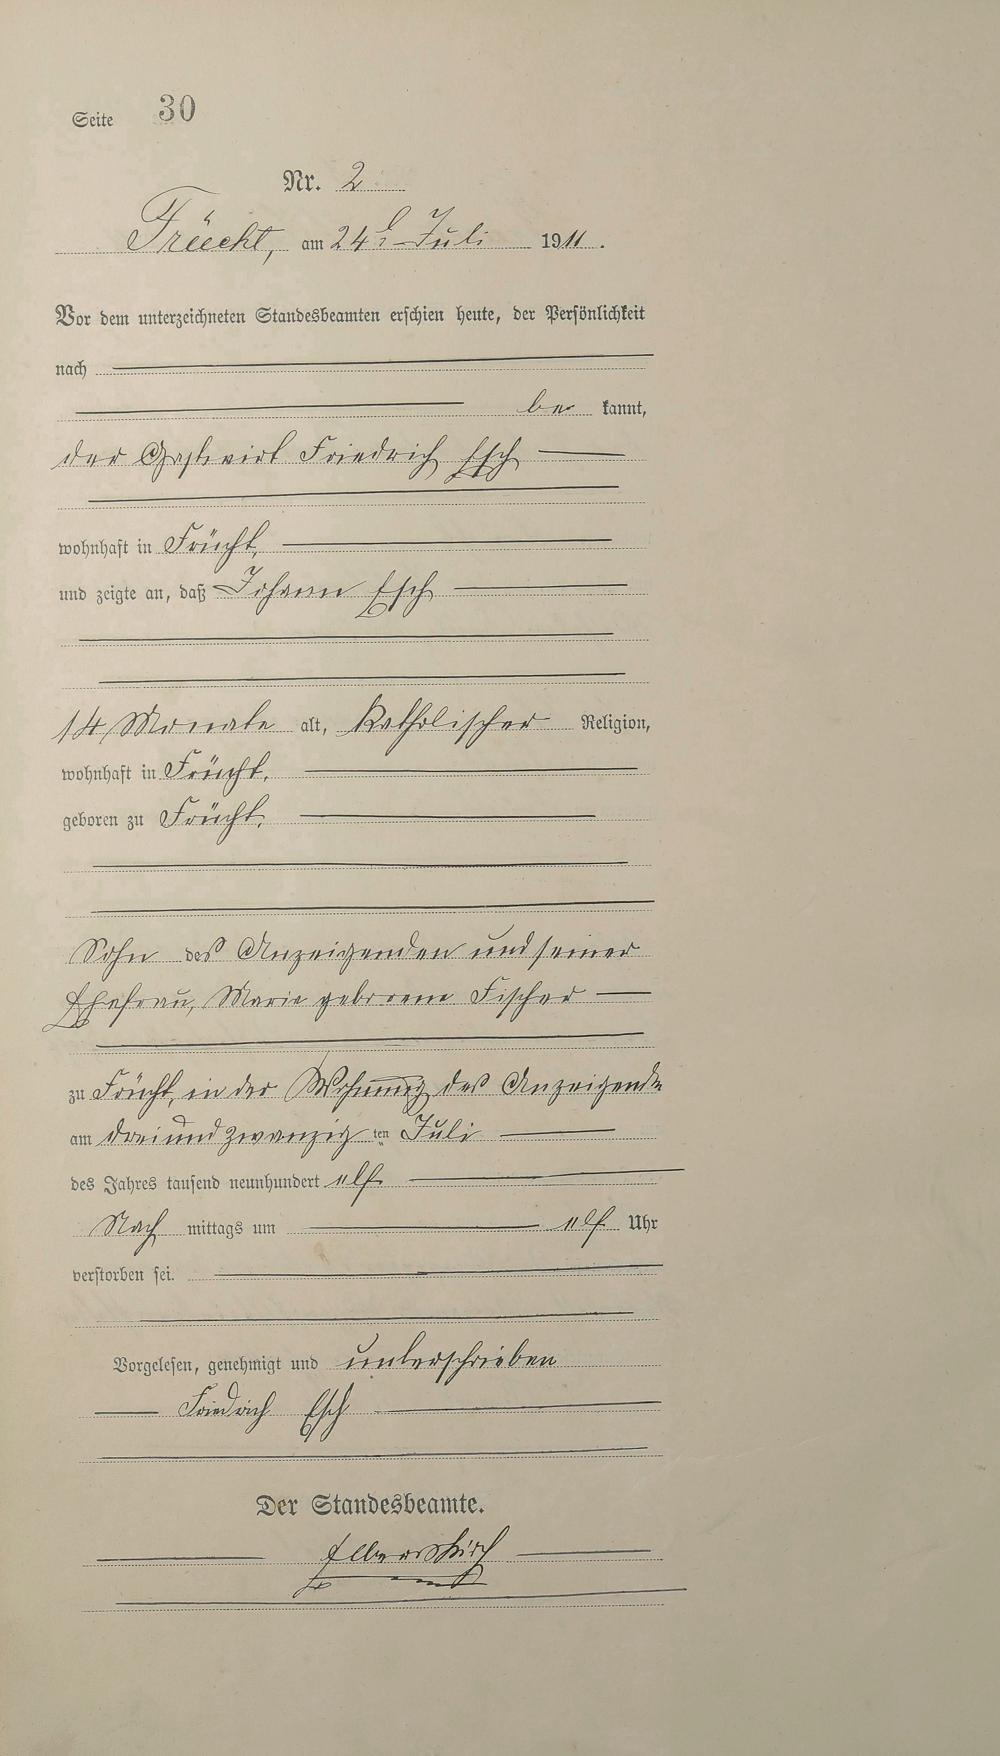 Seite 30
Nr. 2
Früecht, am 24t Juli 1911.
Vor dem unterzeichneten Standesbeamten erschien heute, der Persönlichkeit
nach
be kannt,
der Gastwirt Friedrich Esch
wohnhaft in Frücht,
und zeigte an, daß Johann Esch
14 Monate alt, katholischer Religion,
wohnhaft in Frücht,
geboren zu Frücht,
Sohn des Anzeigenden und seiner
Ehefrau, Marie geborene Fischer
zu Frücht, in der Wohnung des Anzeigenden
am dreiundzwanzig ten Juli
des Jahres tausend neunhundert elf
Nach mittags um elf Uhr
verstorben sei.
Vorgelesen, genehmigt und unterschrieben
Friedrich Esch
Der Standesbeamte.
Elberskirch